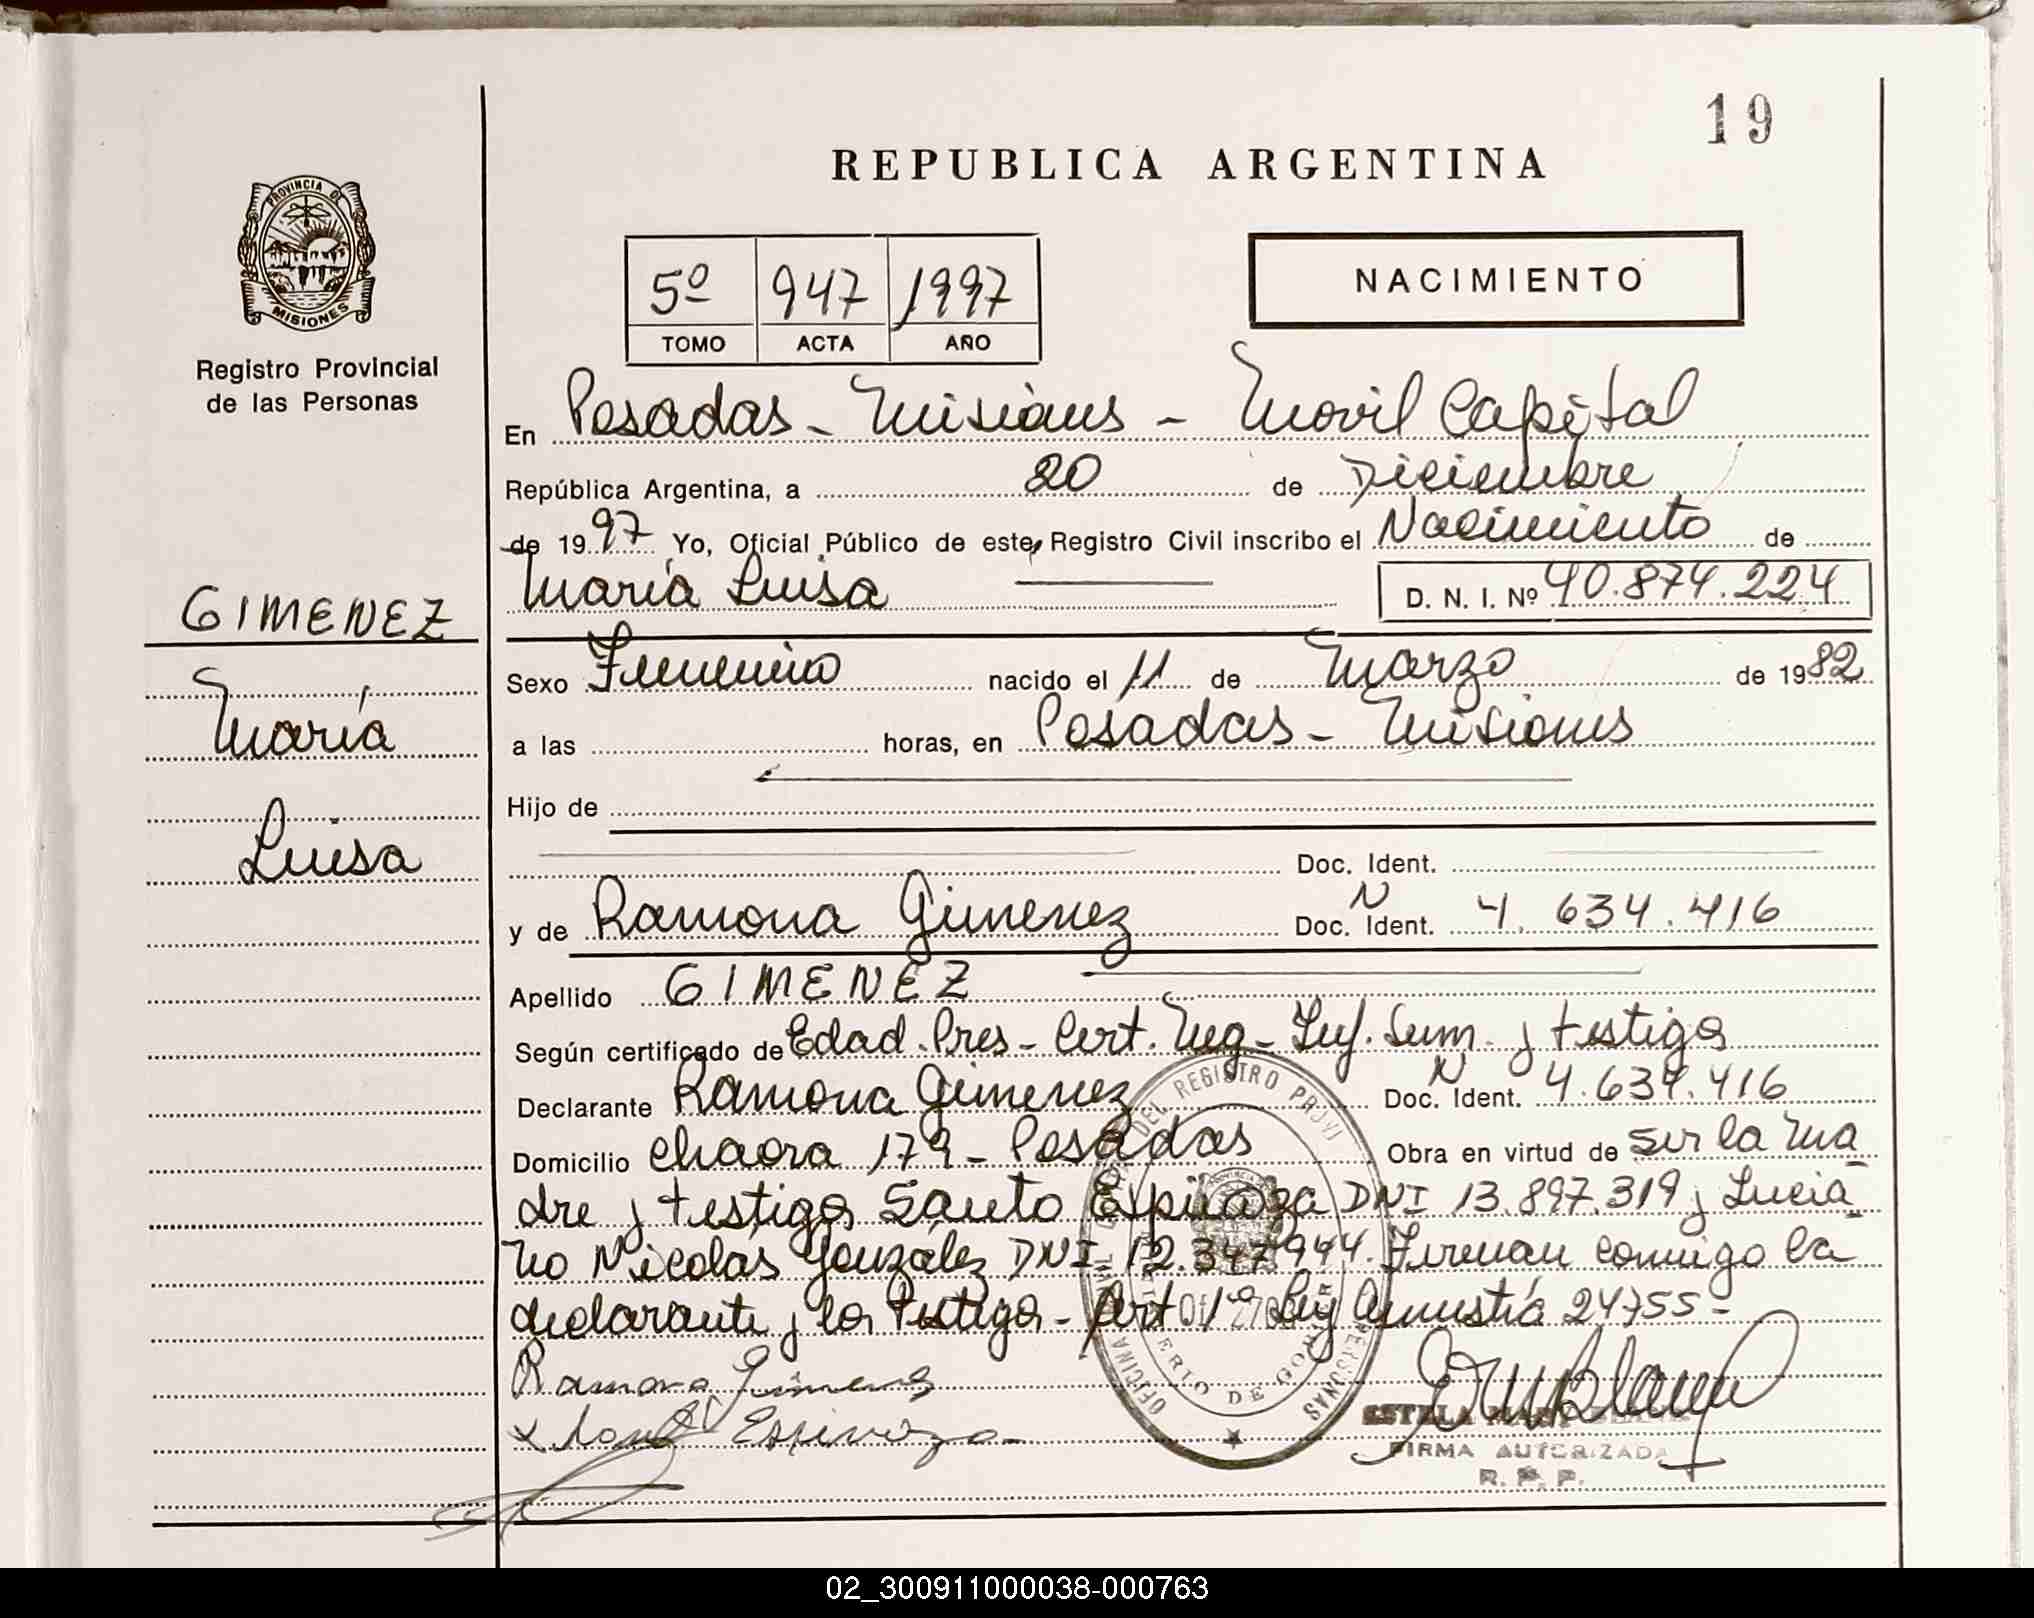 19
REPUBLICA ARGENTINA
PROVINCIA DE
MISIONES
Registro Provincial
de las Personas
5º 947 1997
TOMO ACTA AÑO
NACIMIENTO
En Posadas - Misiones - Movil Capital
República Argentina, a 20 de Diciembre
de 1997 Yo, Oficial Público de este Registro Civil inscribo el Nacimiento de
María Luisa D. N. I. Nº 40.874.224
GIMENEZ
María
Luisa
Sexo Femenino nacido el 11 de Marzo de 1982
a las horas, en Posadas - Misiones
Hijo de
Doc. Ident.
y de Ramona Gimenez Doc. N Ident. 4.634.416
Apellido GIMENEZ
Según certificado de Edad Pres - Cert. Neg - Inf. Sum. y testigos
Declarante Ramona Gimenez Doc. N Ident. 4.634.416
Domicilio chacra 179 - Posadas Obra en virtud de ser la ma
dre y testigos Santo Espinoza DNI 13.897.319 y Lucia
no Nicolás González DNI 12.347.944. Firman conmigo la
declarante y los testigos - Art 1º Ley Amnistía 24755 -
Ramona Gimenez
x Santo Espinoza
OFICINA DEL REGISTRO PERSONAS
DE
FIRMA AUTORIZADA
R. P. P.
02_300911000038-000763